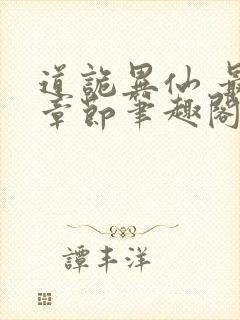 道詭異仙 最
章節筆趣閣
譚丰洋